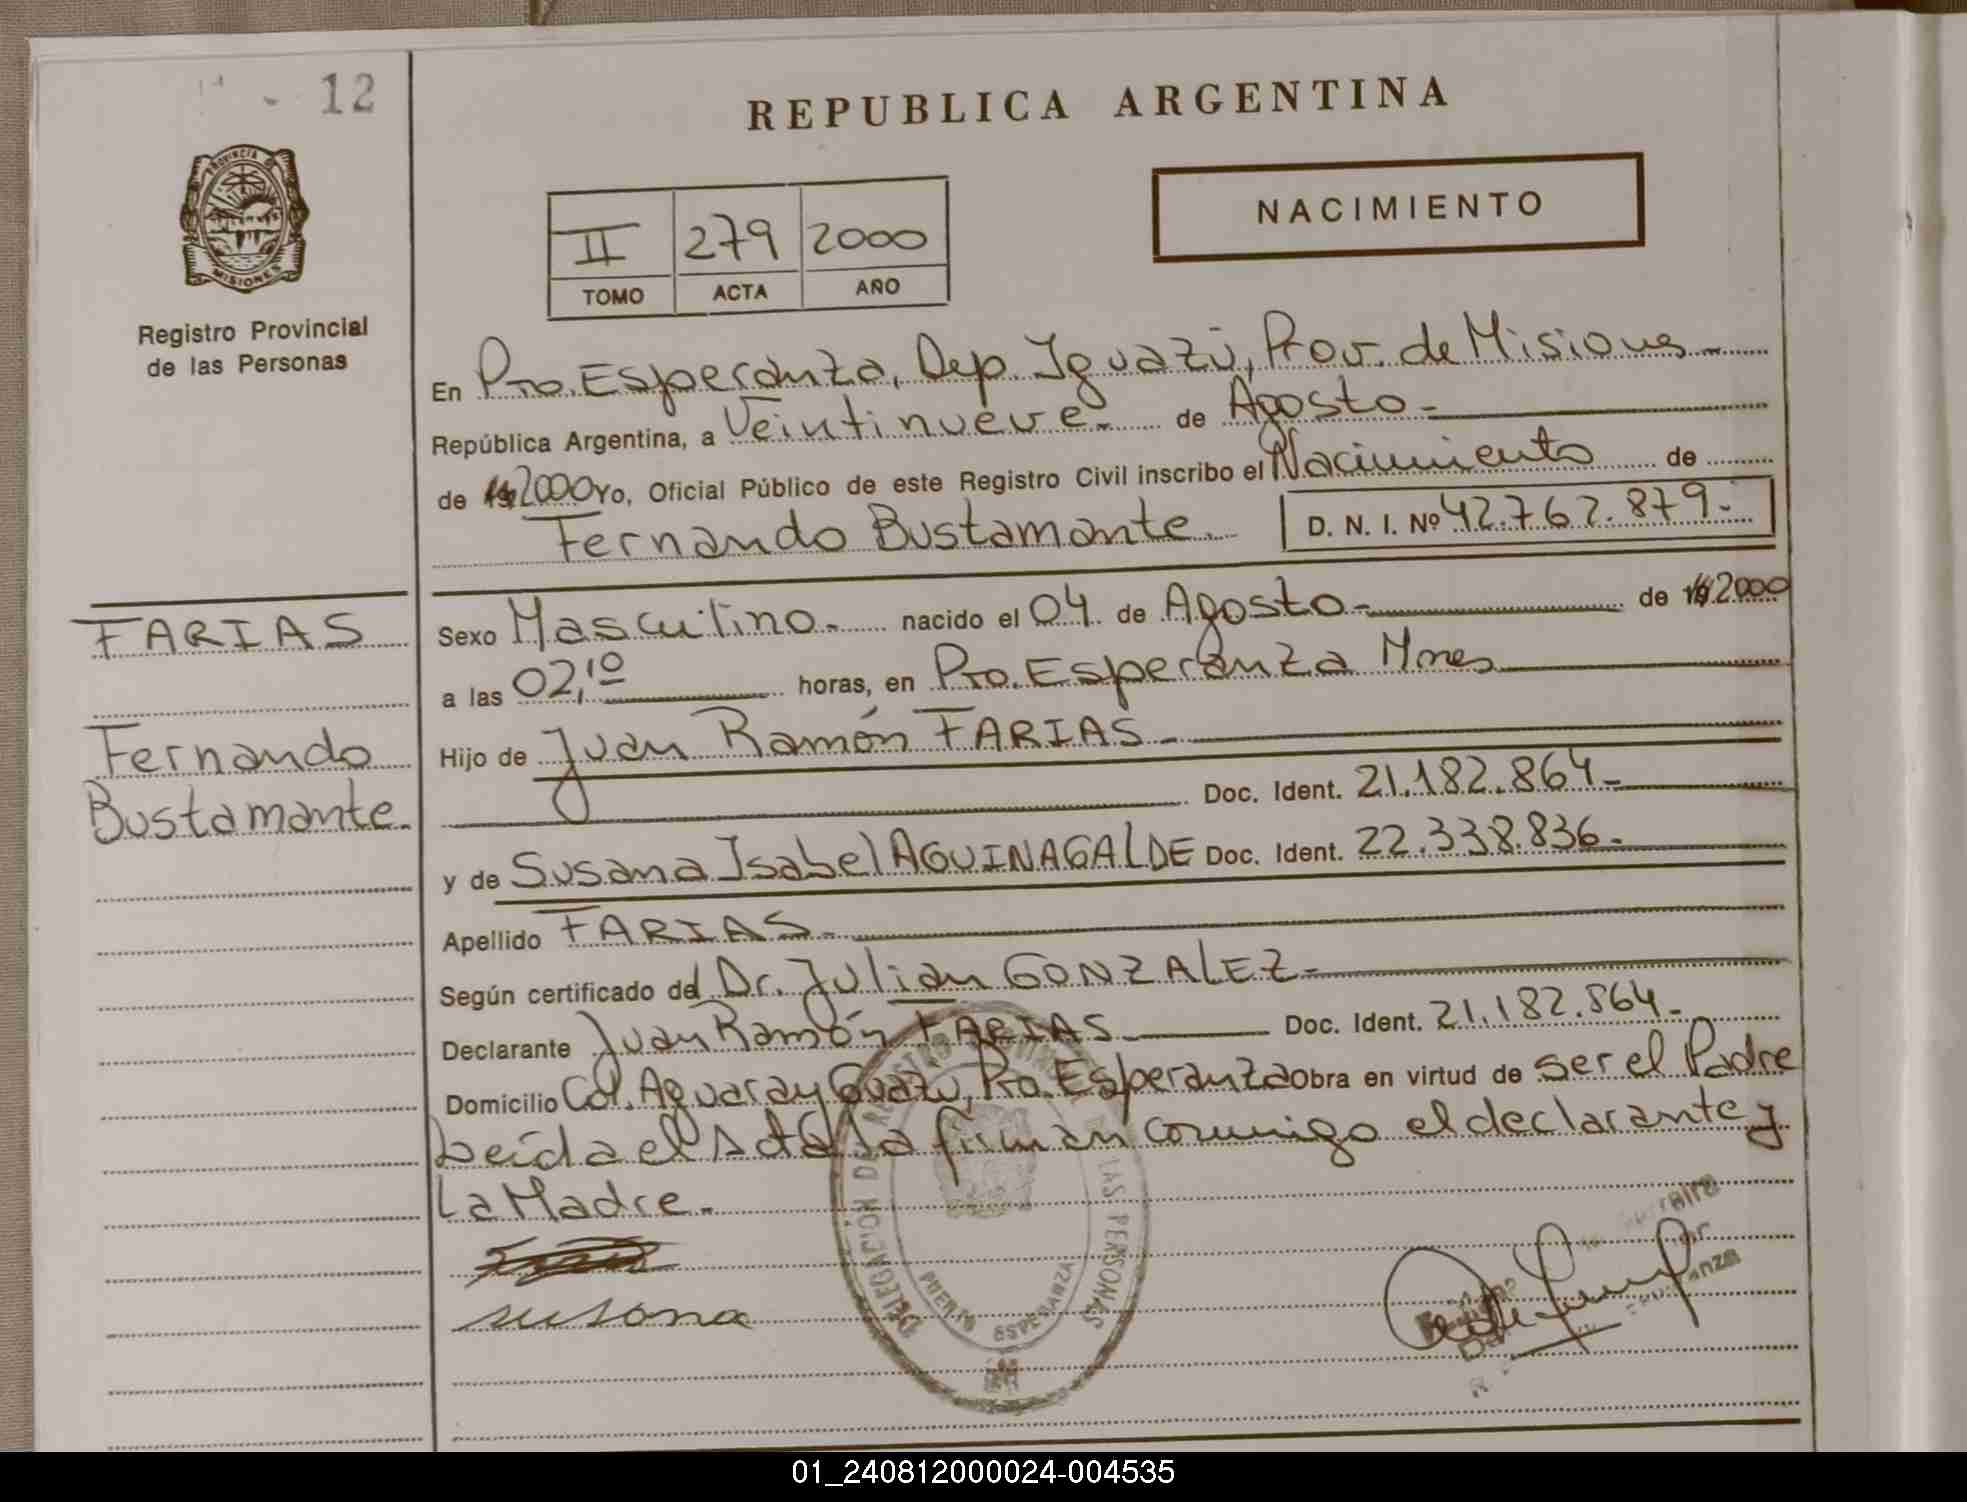 - 12
REPUBLICA ARGENTINA
PROVINCIA DE
MISIONES
Registro Provincial
de las Personas
II 279 2000
TOMO ACTA AÑO
NACIMIENTO
En Pto. Esperanza, Dep. Iguazú, Prov. de Misiones
República Argentina, a Veintinueve. de Agosto.-
de 2000 Yo, Oficial Público de este Registro Civil inscribo el Nacimiento de
Fernando Bustamante. D. N. I. Nº 42.762.879.-
FARIAS
Fernando
Bustamante.
Sexo Masculino.- nacido el 04 de Agosto.- de 19 2000
a las 02,10 horas, en Pto. Esperanza Mnes
Hijo de Juan Ramón FARIAS.-
Doc. Ident. 21.182.864.-
y de Susana Isabel AGUINAGALDE Doc. Ident. 22.338.836.-
Apellido FARIAS.-
Según certificado del Dr. Julian GONZALEZ.-
Declarante Juan Ramón FARIAS. Doc. Ident. 21.182.864.-
Domicilio Col. Aguaray Guazu, Pto. Esperanza Obra en virtud de ser el Padre
Leída el Acta la firman conmigo el declarante y
La Madre.-
susana
DELEGACIÓN DEL REGISTRO PROVINCIAL DE LAS PERSONAS
PUERTO ESPERANZA
01_240812000024-004535